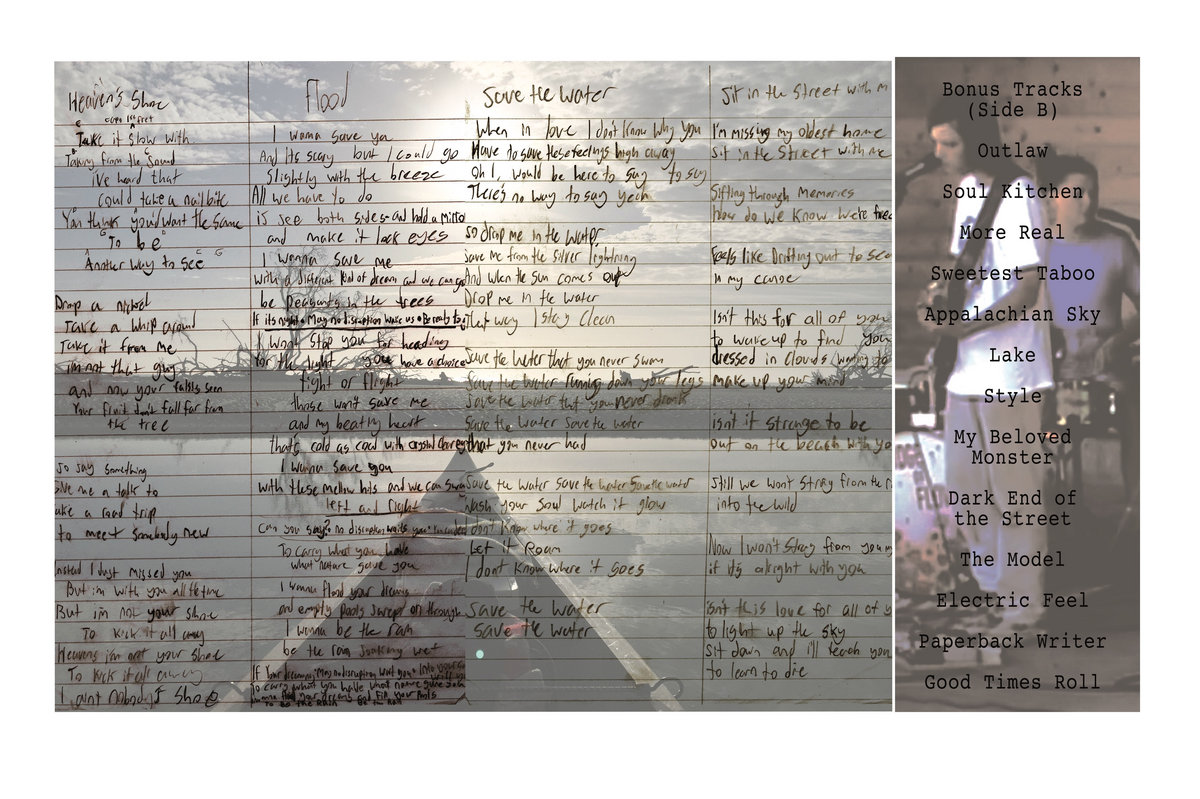 Heaven's Shoe
capo 1st fret
Take it slow with
Taking from the sound
i've heard that
could take a nail bite
You think you'd want the same
To be
Another way to see
Drop a nickel
Take a whip around
Take it from me
i'm not that guy
and now your falls seen
Your fruit don't fall far from
the tree
So say something
Give me a talk to
Take a road trip
to meet somebody new
Instead I just missed you
But im with you all the time
But im not your shoe
To kick it all away
Heavens im not your shoe
To kick it all away
I aint nobody's shoe
Flood
I wanna save ya
And its scary but I could go
Slightly with the breeze
All we have to do
is see both sides and hold a mirror
and make it lock eyes
I wanna save me
with a different kind of dream and we can go
be peasants in the trees
If its night May no disruption wake us & Be ready to
I wont stop you for heading
for the light you have a choice
fight or flight
those won't save me
and my beating heart
that's cold as coal with crystal
I wanna save you
with these mellow hits and we can
left and right
Can you say? no disruption
To carry what you have
what nature gave you
I wanna flood your dreams
and empty pools swept on through
I wanna be the rain
be the rag soaking wet
If Your dreaming May no disruption
To carry what you have what nature gave
wanna flood your dreams and fill your
To be the Rain Be the
Save the Water
When in love I don't know why you
Have to save these feelings high away
Oh I, would be here to say to say
There's no way to say yeah
So drop me in the water
Save me from the silver lightning
And when the sun comes out
Drop me in the water
That way I stay clean
Save the water that you never swam
Save the water running down your legs
Save the water that you never drank
Save the water save the water
that you never had
Save the water save the water save the water
Wash your soul watch it glow
I don't know where it goes
Let it Roam
I don't know where it goes
Save the water
save the water
Sit in the Street with m
I'm missing my oldest home
Sit in the street with me
Sifting through Memories
how do we know we're free
Feels like Drifting out to sea
In my canoe
Isn't this for all of you
to wake up to find you
dressed in clouds waiting to
make up your mind
isn't it strange to be
out on the beach with yo
Still we won't stray from the r
into the wild
Now I won't stray from you
if it's alright with you
isn't this love for all of y
to light up the sky
Sit down and i'll teach you
to learn to die
Bonus Tracks
(Side B)
Outlaw
Soul Kitchen
More Real
Sweetest Taboo
Appalachian Sky
Lake
Style
My Beloved
Monster
Dark End of
the Street
The Model
Electric Feel
Paperback Writer
Good Times Roll